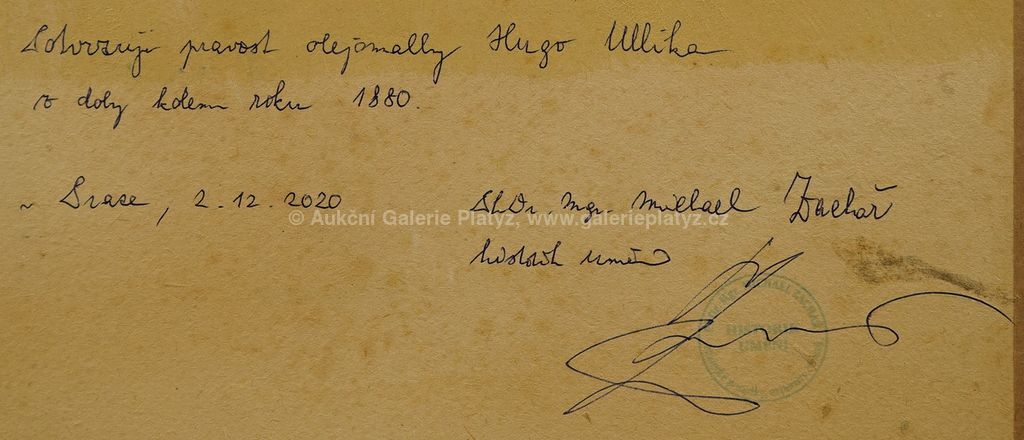 Potvrzuji pravost olejomalby Hugo Ullika
z doby kolem roku 1880.
v Praze, 2.12.2020
PhDr. Mgr. Michael Zachař
historik umění
© Aukční Galerie Platýz, www.galerieplatyz.cz
HISTORIK
UMĚNÍ